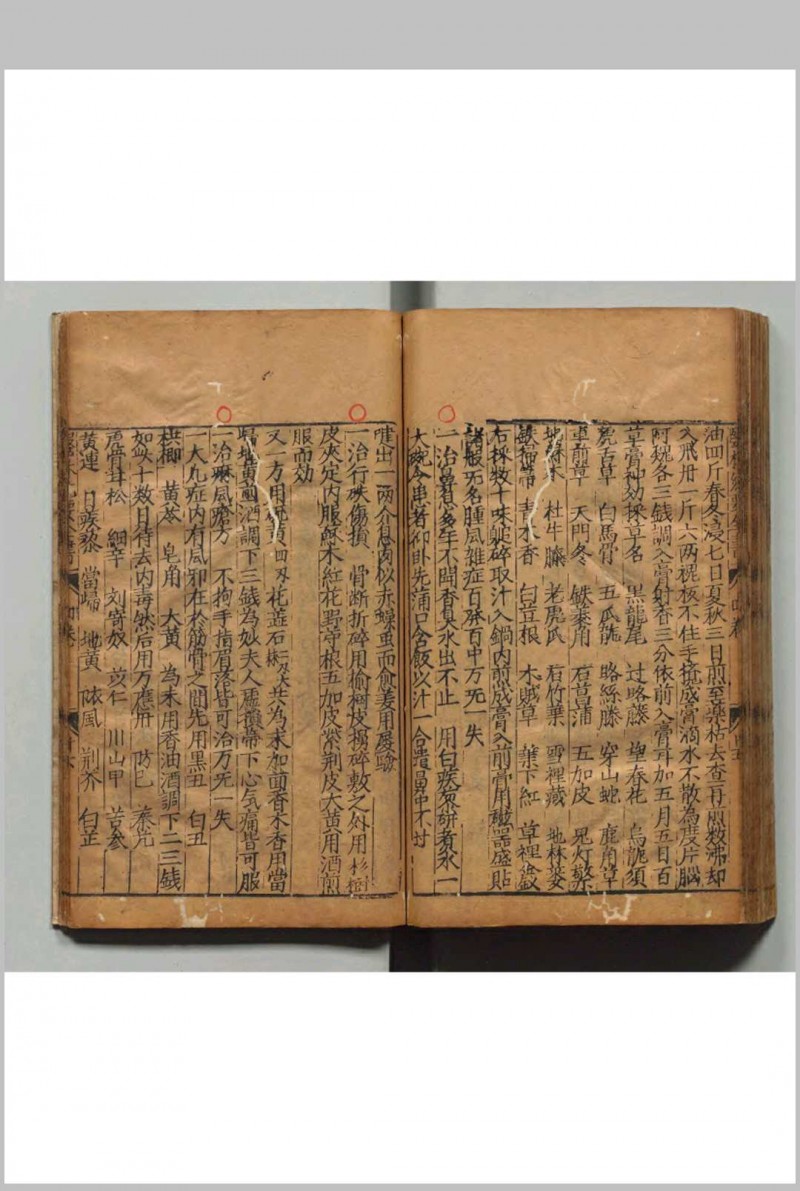 油四斤春冬浸七日夏秋三日煎至藥枯去查再煎数沸却
入飛丹一斤六两槐板不住手搅成膏滴水不散為度片腦
阿魏各三錢調入膏射香三分依前入膏再加五月五日百
草膏神効採草名 黑龍尾 过路藤 望春花 烏龍須
蛇舌草 白馬骨 五爪龍 略絲藤 穿山蛇 鹿角草
車前草 天門冬 铁秦角 石菖浦 五加皮 見灯
杜牛膝 老虎爪 石竹葉 雪裡藏 地林
鉄掃帚 青木香 白豆根 木賊草 葉下紅 草裡金釵
右採数十味碎取汁入鍋内煎成膏入前膏用磁器盛貼
諸般无名腫風雜症百發百中万无一失
一治鼻息多年不聞香臭水出不止 用白蒺藜研煮水一
大碗令患者仰卧先滿口含飯以汁一合灌鼻中不过
嚏出一两个息肉似赤蝶虫而愈姜用屢驗
一治行砍傷損 骨断折碎用榆樹皮搗碎敷之外用杉樹
皮夾定内服蘇木紅花野苧根五加皮紫荆皮大黄用酒煎
服而効
又一方用硫黄四 花蕋石 共為末加靣香木香用當
歸地黄煎酒調下三錢為妙夫人臟攧常下心气痛皆可服
一治麻風瘡方 不拘手指眉落皆可治万无一失
一大凡症内有風邪在於筋骨之間先用黑丑 白丑
梹榔 黄芩 皂角 大黄 為末用香油酒調下二三錢
如此十数日待去内毒然后用万應丹 防已 秦艽
虎骨 松 細辛 刘寄奴 苡仁 川山甲 苦参
黄連 白蒺藜 當歸 地黄 防風 荆芥 白芷